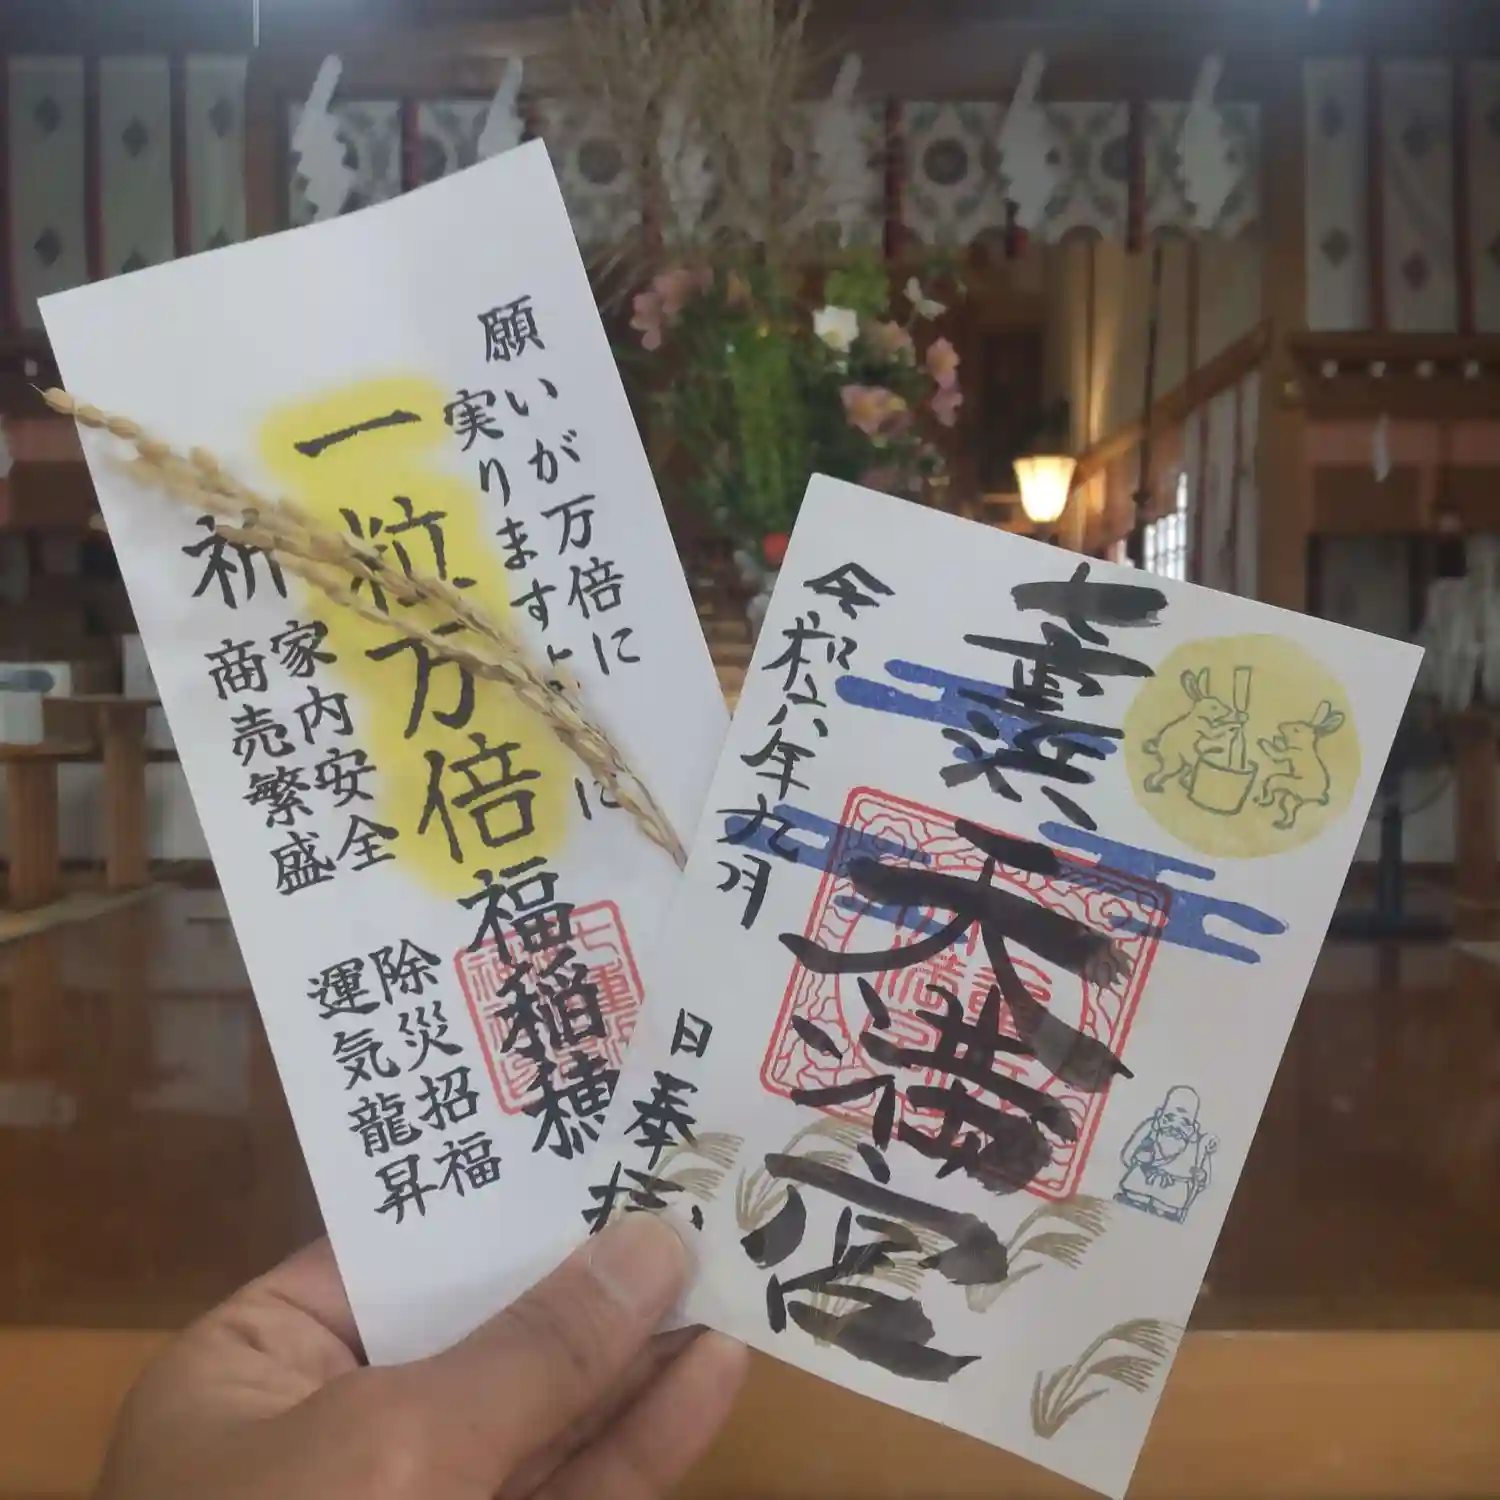 願いが万倍に
実りますように
一粒万倍
福稲穂
祈
家内安全
商売繁盛
除災招福
運気龍昇
天満宮
令和六年九月
日奉拝